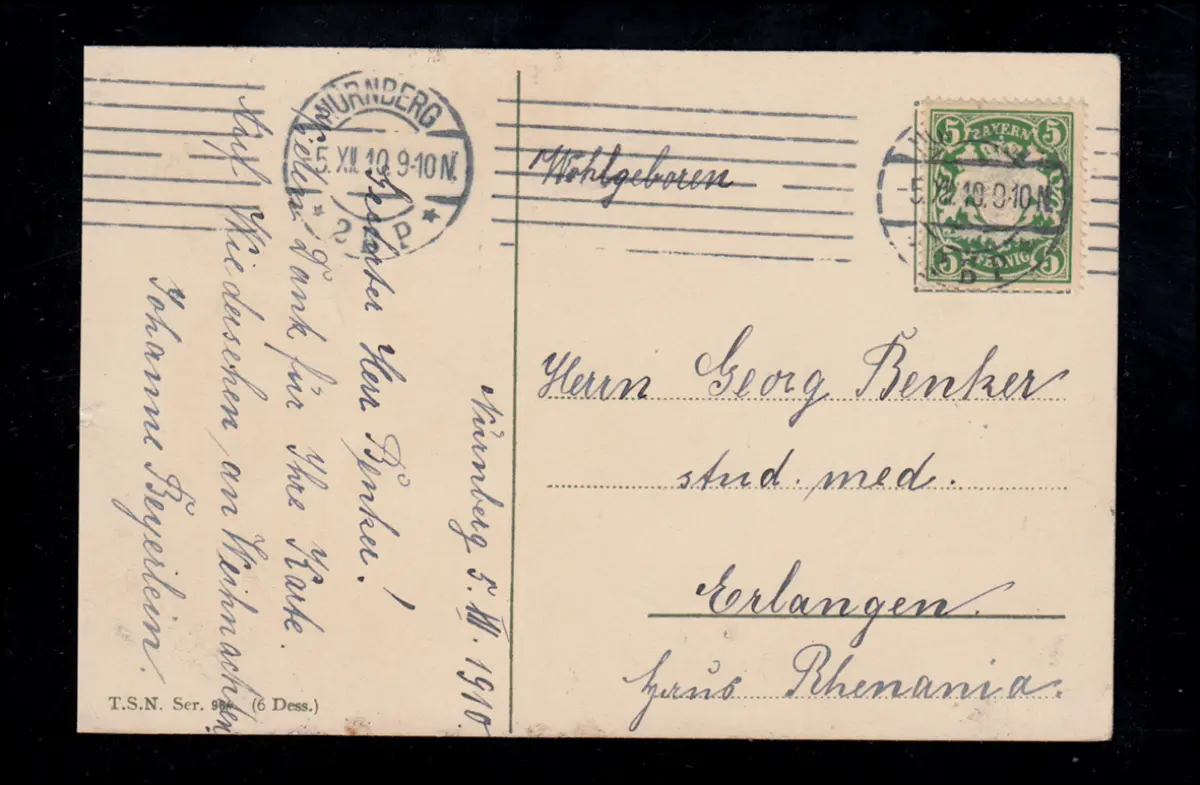 NÜRNBERG
5.XII.10.9-10N.
* 2. P *
Wohlgeboren
5 BAYERN 5
5 PFENNIG 5
-5.XII.10.9-10N.
Herrn Georg Benker
stud. med.
Erlangen.
Haus Rhenania.
Nürnberg 5. XII. 1910.
Geehrter Herr Benker!
Vielen Dank für Ihre Karte.
Auf Wiedersehen an Weihnachten
Johanne Beyerlein.
T.S.N. Ser. (6 Dess.)